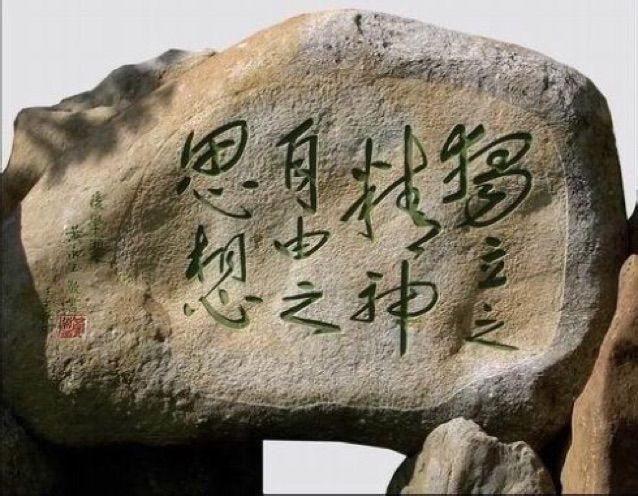 獨立之
精神
自由之
思想